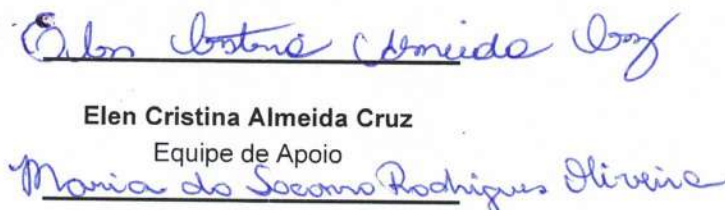 Elen Cristina Almeida Cruz
Elen Cristina Almeida Cruz
Equipe de Apoio
Maria do Socorro Rodrigues Oliveira